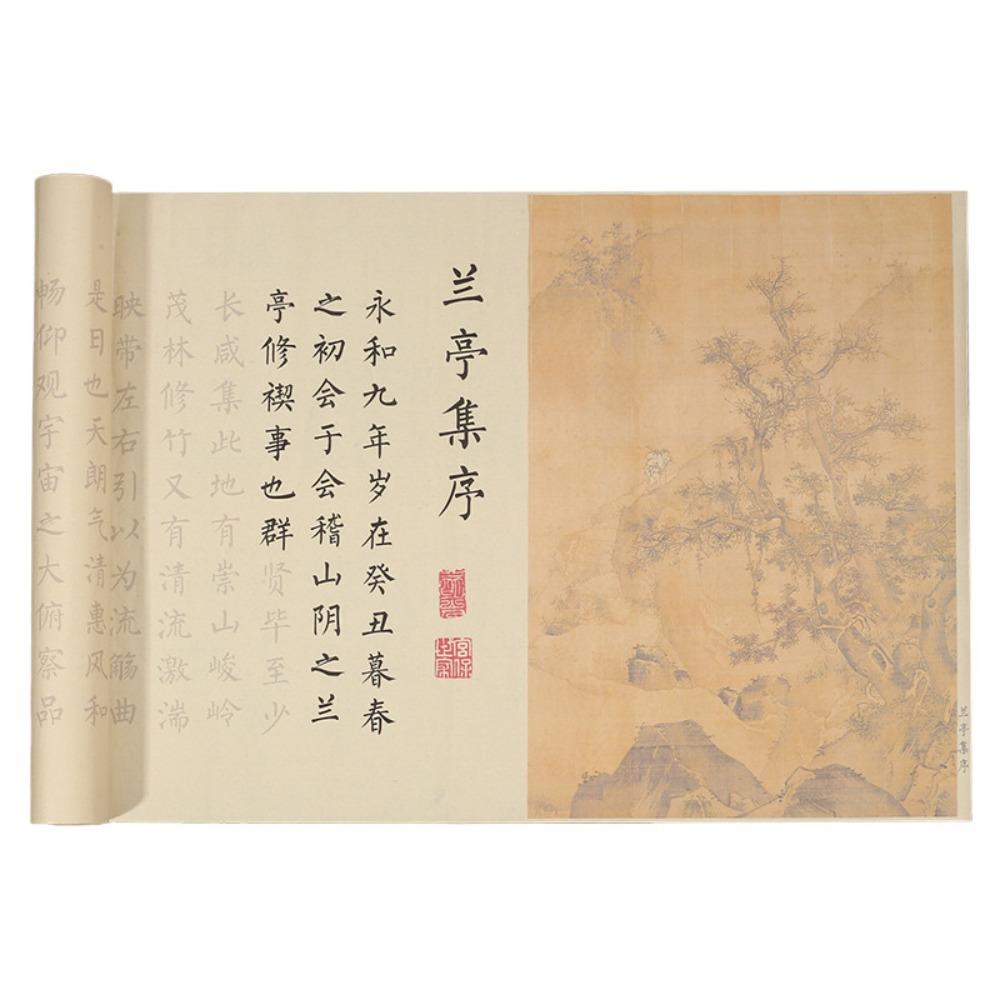 兰亭集序
兰亭集序
宫保世家
永和九年岁在癸丑暮春
之初会于会稽山阴之兰
亭修禊事也群贤毕至少
长咸集此地有崇山峻岭
茂林修竹又有清流激湍
映带左右引以为流觞曲
是日也天朗气清惠风和
畅仰观宇宙之大俯察品